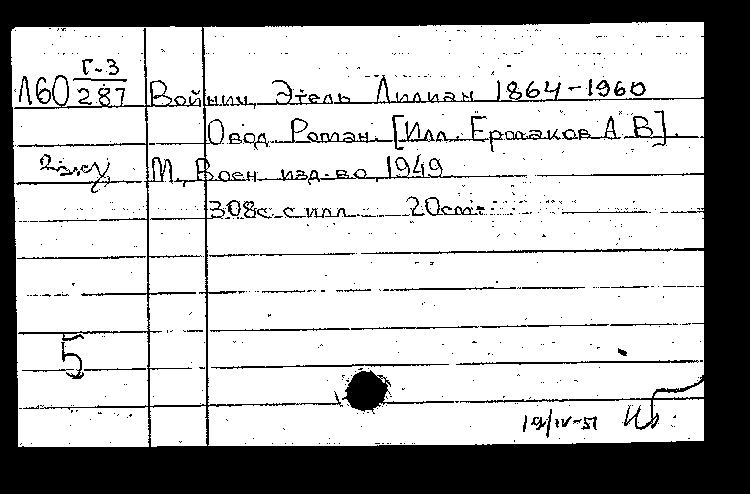 Г-3
Л60 287
Войнич, Этель Лилиан 1864-1960
Овод. Роман. [Илл. Ермаков А. В].
М., Воен. изд-во, 1949
308с. с илл. 20см.
5
19/IV-51